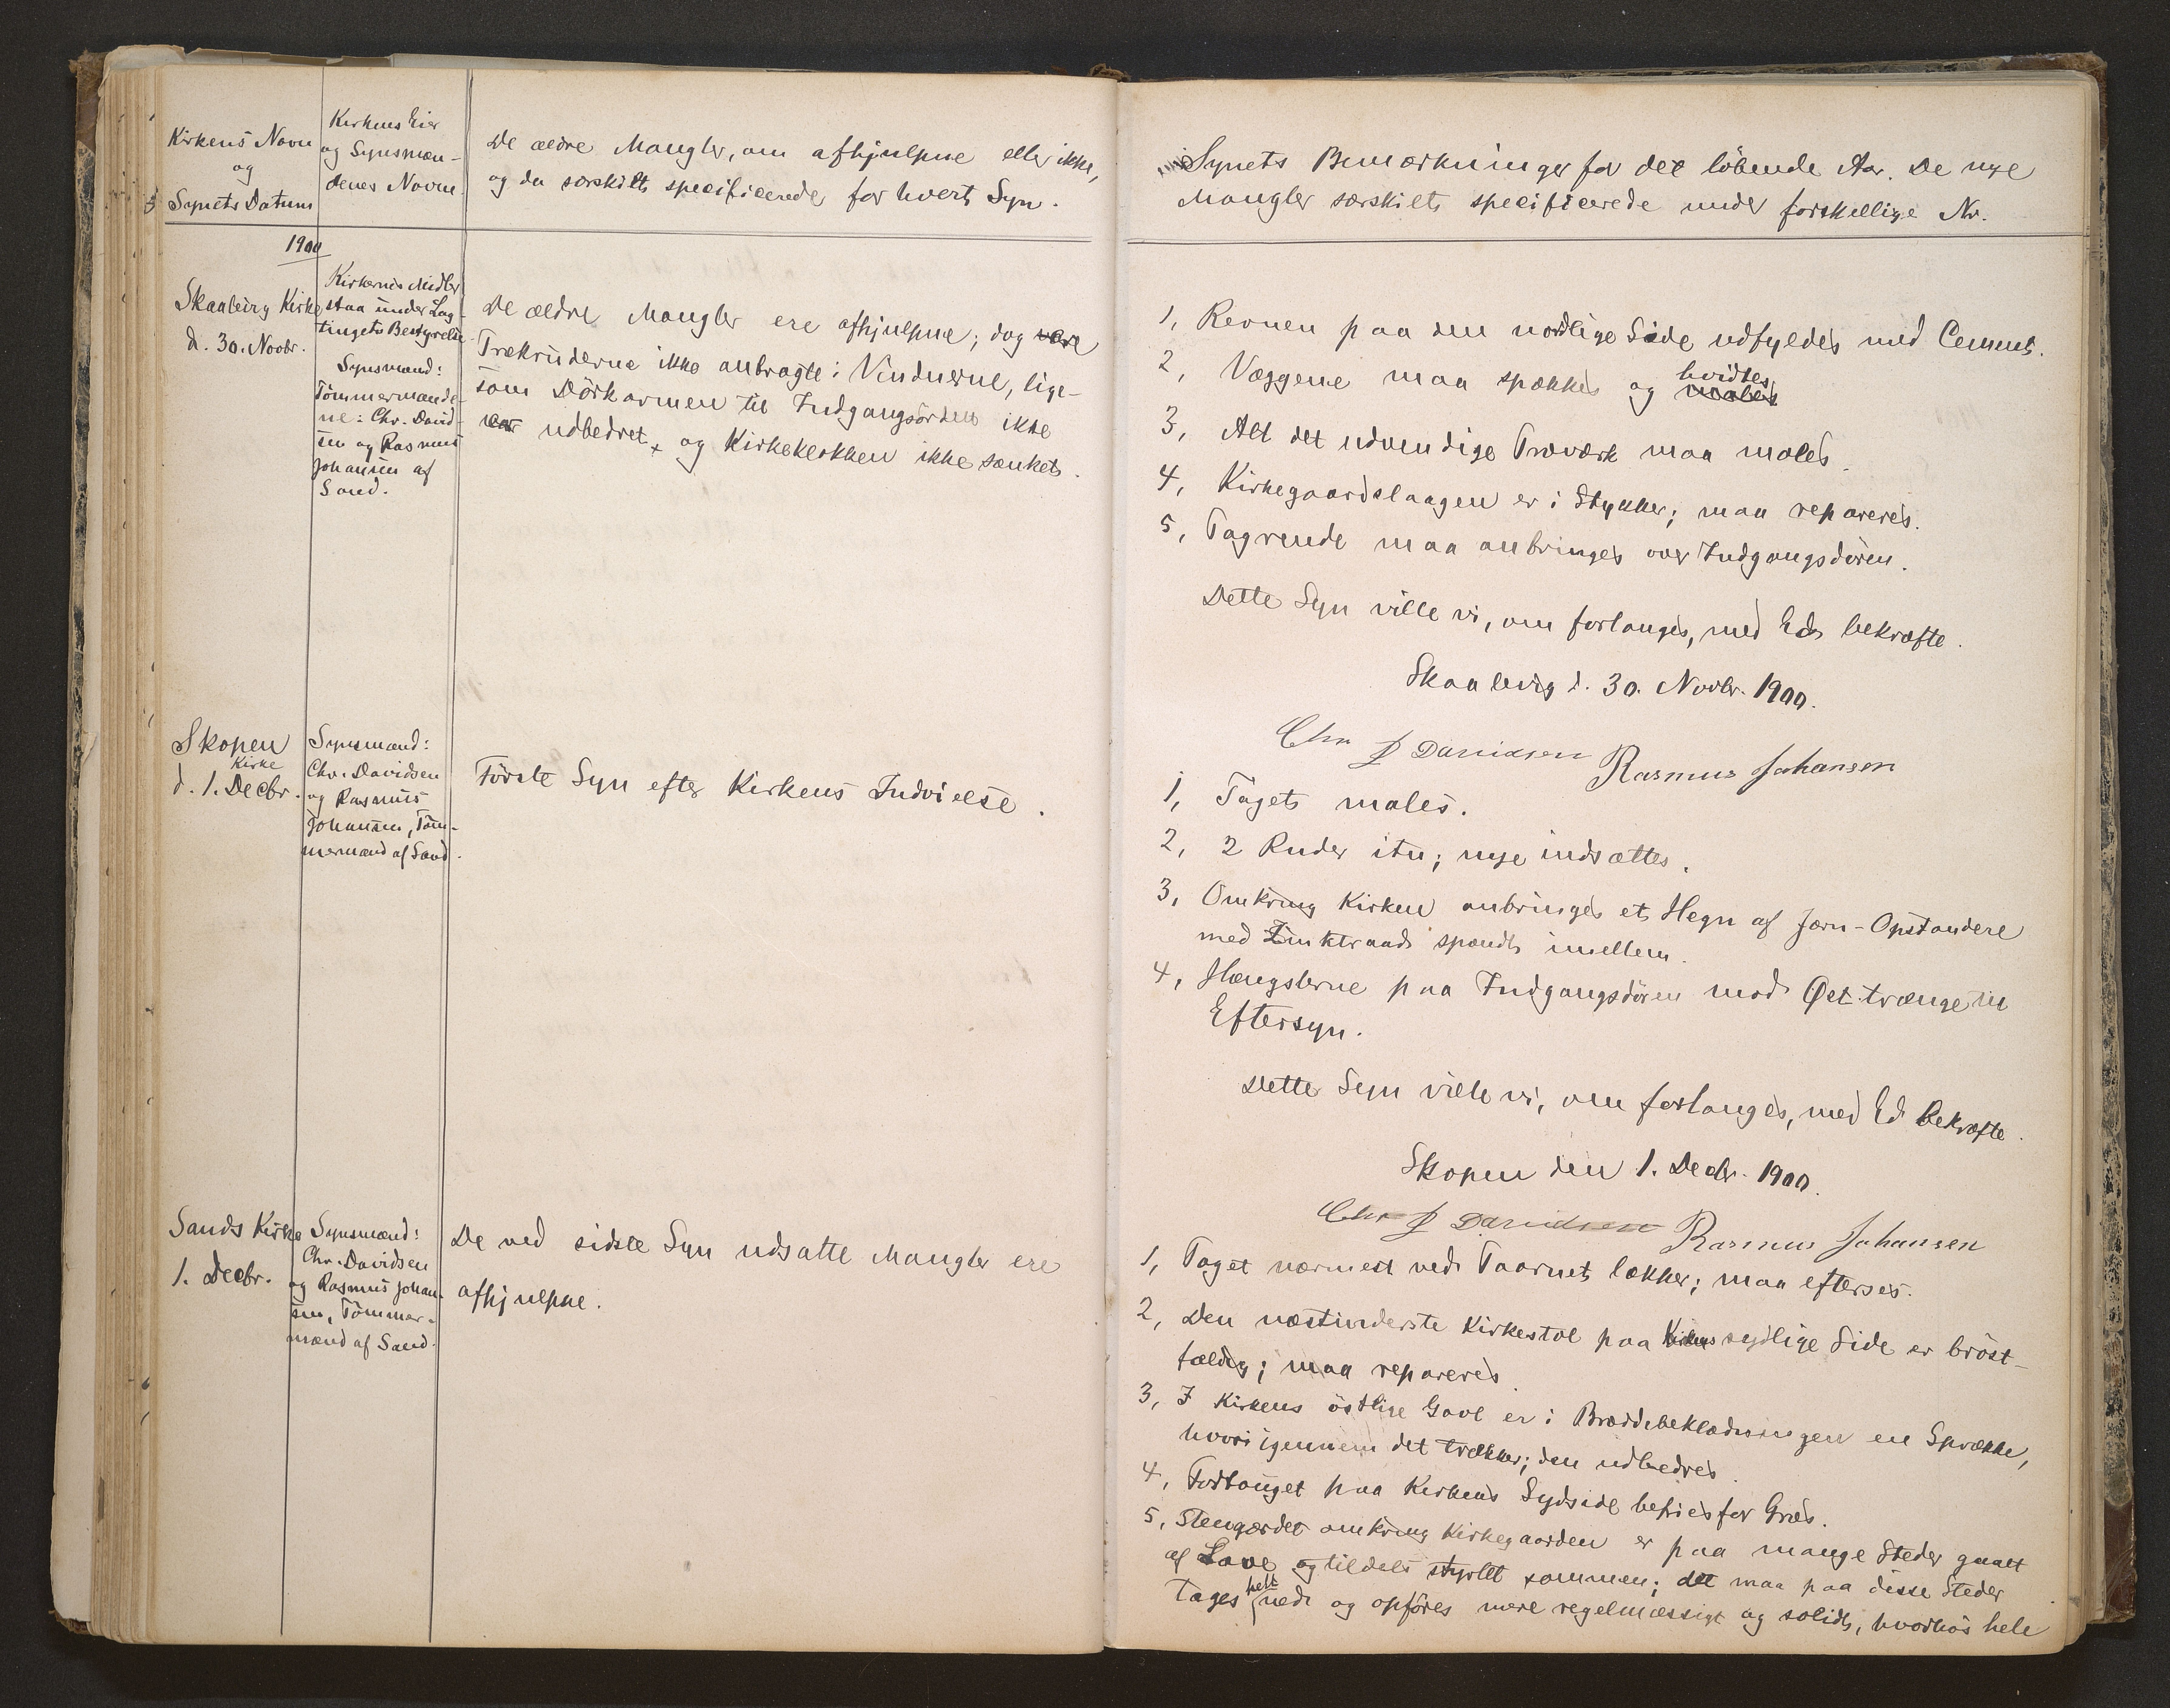 Kirkens Navn
og
Synets Datum
Kirkens Eier
og Synsmæn-
denes Navne.
De ældre Mangler, om afhjulpne eller ikke,
og da særskilt specificerede for hvert Syn.
1900
Skaalevig Kirke
d. 30. Novbr.
Kirkernes Midler
staa under Lag-
tingets Bestyrelse
Synsmænd:
Tömmermænde-
ne: Chr. David-
sen og Rasmus
Johansen af
Sand.
De ældre Mangler ere afhjulpne; dog vare
Trækruderne ikke anbragte i Vinduerne, lige-
som Dörkarmen til Indgangsdören ikke
var udbedret, og Kirkeklokken ikke sænket.
Skopen
Kirke
d. 1. Decbr.
Synsmænd:
Chr. Davidsen
og Rasmus
Johansen, Töm-
mermænd af Sand.
Förste Syn efter Kirkens Indvielse.
Sands Kirke
1. Decbr.
Synsmænd:
Chr. Davidsen
og Rasmus Johan-
sen, Tömmer-
mænd af Sand.
De ved sidste Syn udsatte Mangler ere
afhjulpne.
Synets Bemærkninger for det löbende Aar. De nye
Mangler særskilt specificerede under forskellige Nr.
1, Revnen paa den nordlige Side udfyldes med Cement.
2, Væggene maa spækkes og males hvidtes
3, Alt det udvendige Træværk maa males.
4, Kirkegaardslaagen er i Stykker; maa repareres.
5, Tagrende maa anbringes over Indgangsdören.
Dette Syn ville vi, om forlanges, med Ed bekræfte.
Skaalevig d. 30. Novbr. 1900.
Chr D Davidsen Rasmus Johansen
1, Taget males.
2, 2 Ruder itu; nye indsættes.
3, Omkring Kirken anbringes et Hegn af Jærn-Opstandere
med Zinktraad spændt imellem.
4, Hængslerne paa Indgangsdören mod Øst trænge til
Eftersyn.
Dette Syn ville vi, om forlanges, med Ed bekræfte.
Skopen den 1. Decbr. 1900.
Chr D Davidsen Rasmus Johansen
1, Taget nærmest ved Taarnet lækker; maa efterses.
2, Den næstinderste Kirkestol paa Kirkens sydlige Side er bröst-
fældig; maa repareres.
3, I Kirkens östlige Gavl er i Bræddebeklædningen en Sprække,
hvori igennem det trækker; den udbedres.
4, Fortouget paa Kirkens Sydside befries for Græs.
5, Stengærdet omkring Kirkegaarden er paa mange Steder gaaet
af Lave og tildels styrtet sammen; det maa paa disse Steder
tages helt ned og opföres mere regelmæssigt og solidt, hvorhos hele